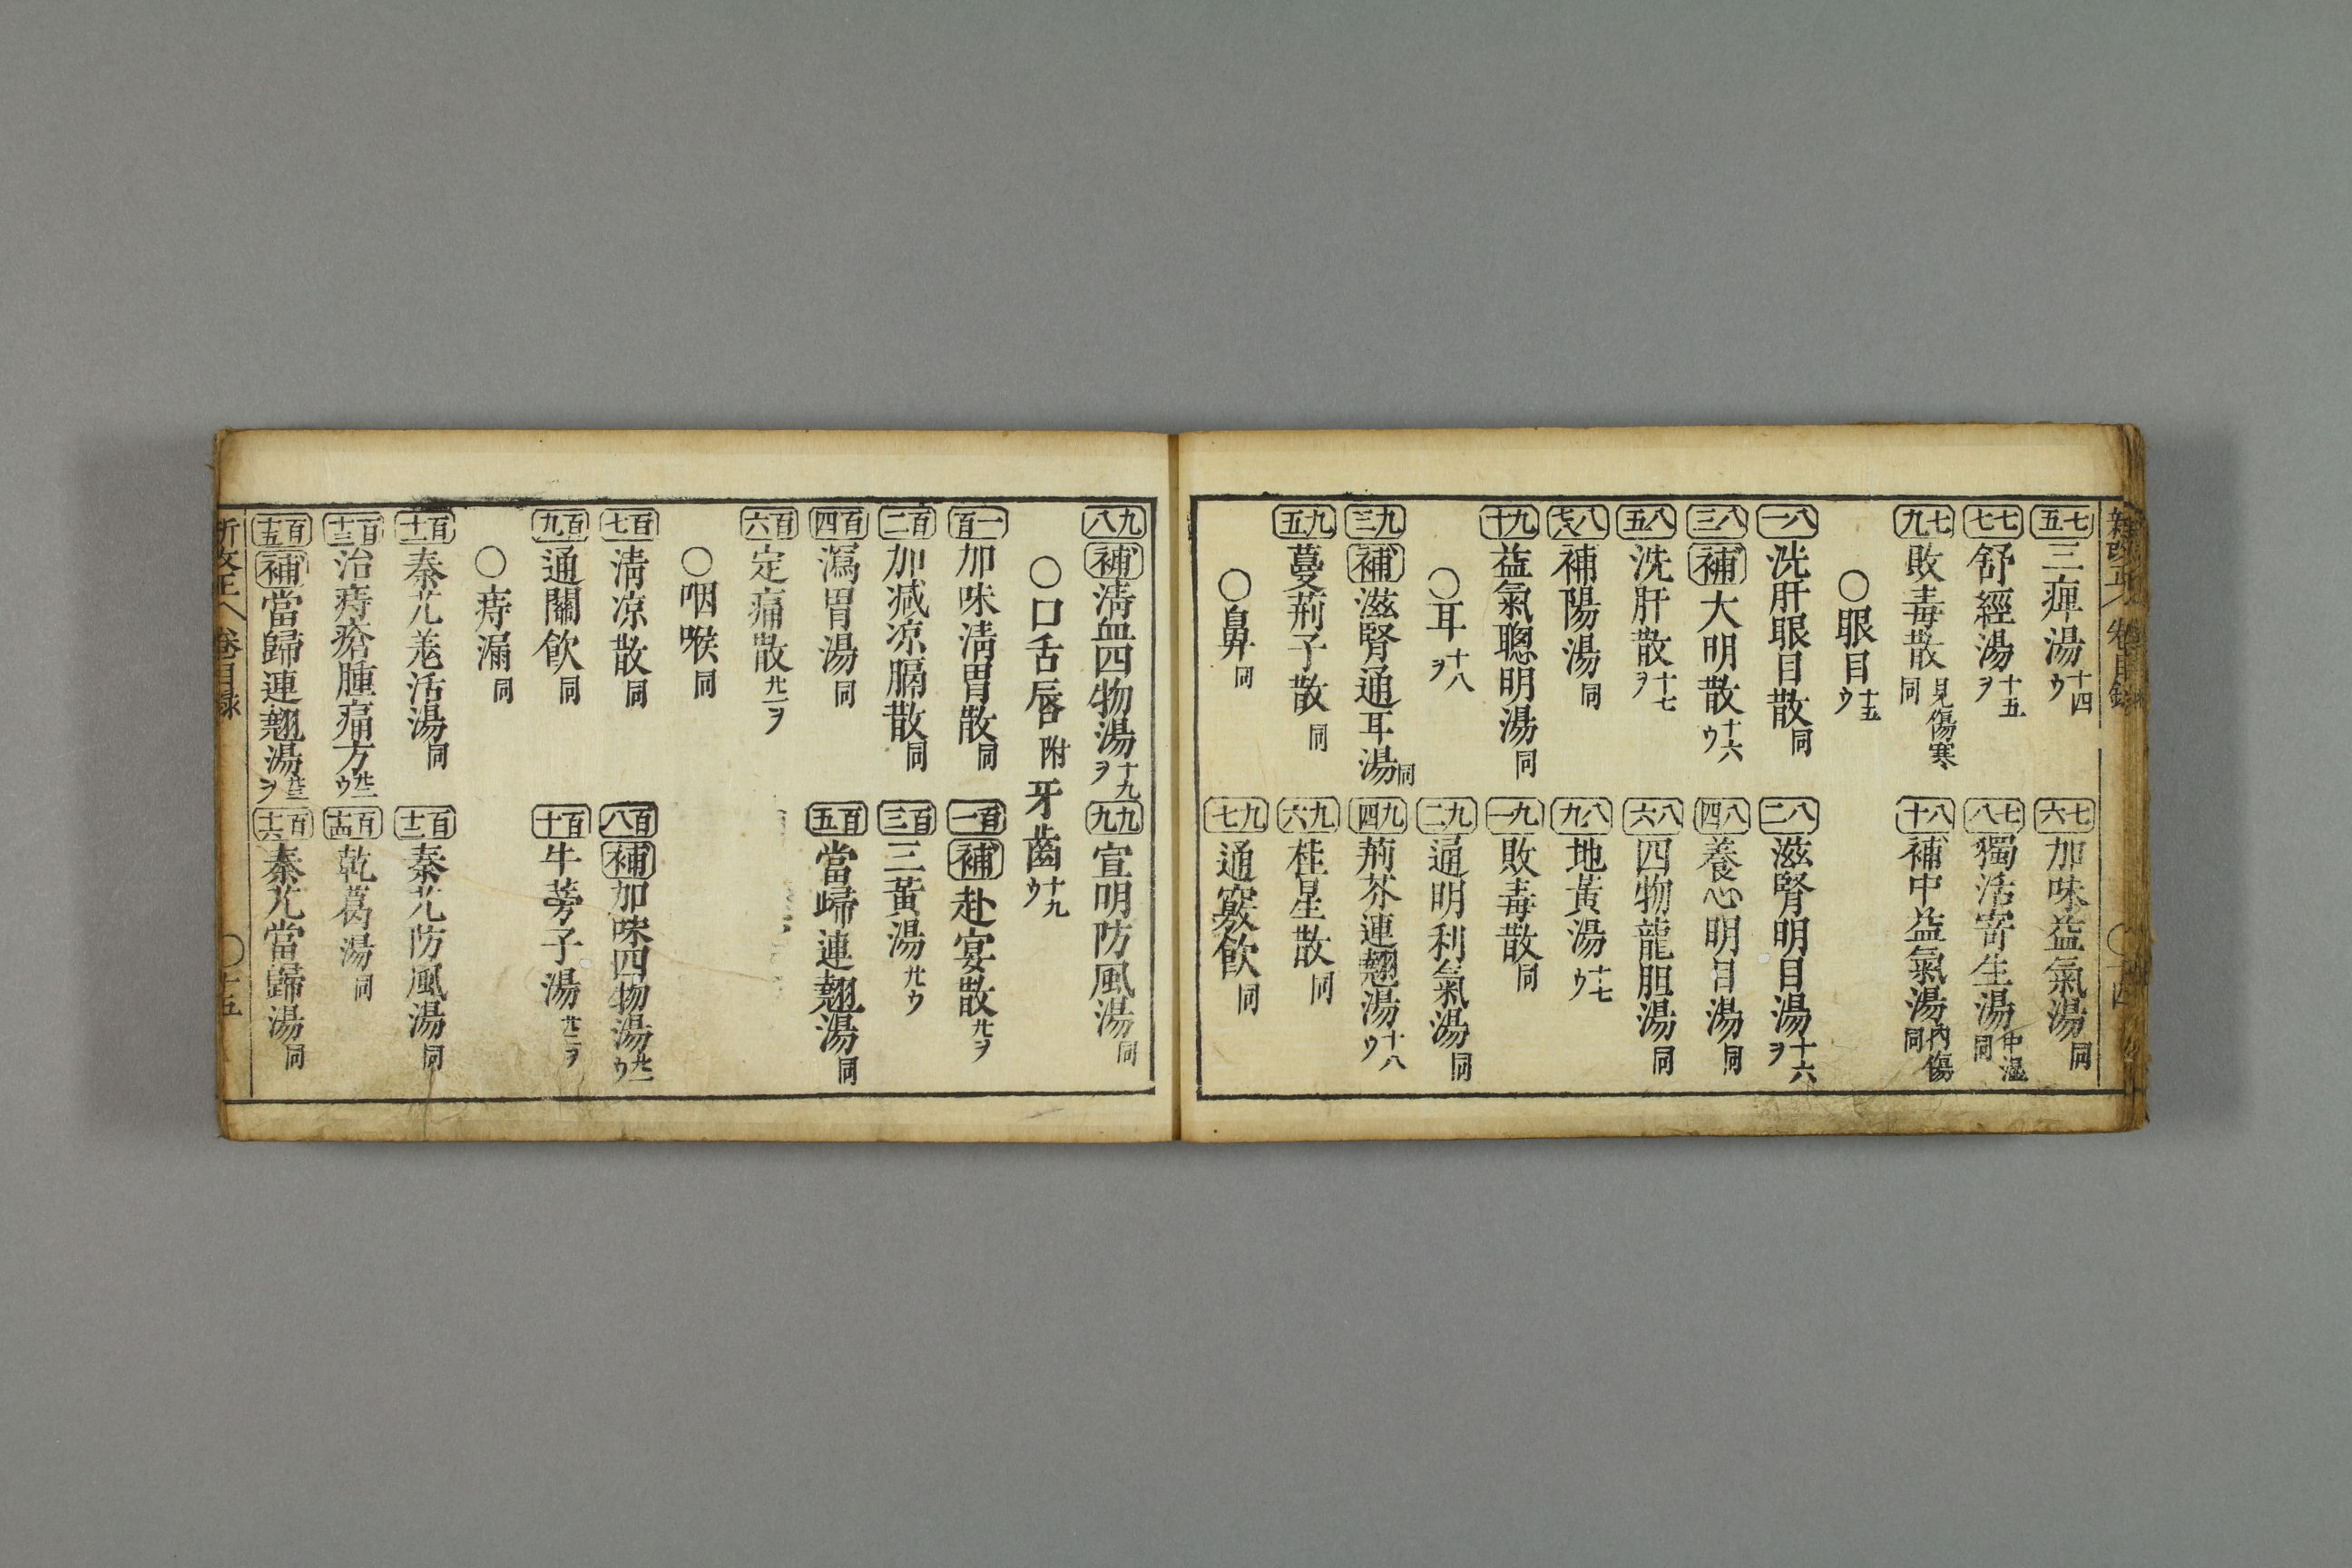 七五 三痺湯 十四ウ 七六 加味益氣湯 同
七七 舒經湯 十五ヲ 七八 獨活寄生湯 中濕同
七九 敗毒散 見傷寒同 八十 補中益氣湯 内傷同
〇眼目 十五ウ
八一 洗肝眼目散 同 八二 滋腎明目湯 十六ヲ
八三 補 大明散 十六ウ 八四 養心明目湯 同
八五 洗肝散 十七ヲ 八六 四物龍胆湯 同
補陽湯 同 八九 地黃湯 十七ウ
九十 益氣聰明湯 同 九一 敗毒散 同
〇耳 十八ヲ 九二 通明利氣湯 同
九三 補 滋腎通耳湯 同 九四 荊芥連翹湯 十八ウ
九五 蔓荊子散 同 九六 桂星散 同
〇鼻 同 九七 通竅飲 同
九八 補 淸血四物湯 十九ヲ 九九 宣明防風湯 同
〇口舌唇 附 牙齒 十九ウ
一百 加味淸胃散 同 百一 補 赴宴散 廿ヲ
百二 加减凉膈散 同 百三 三黃湯 廿ウ
百四 瀉胃湯 同 百五 當歸連翹湯 同
百六 定痛散 廿一ヲ
〇咽喉 同
百七 淸凉散 同 百八 補 加味四物湯 廿一ウ
百九 通關飲 同 百十 牛蒡子湯 廿二ヲ
〇痔漏 同
百十一 秦艽羗活湯 同 百十二 秦艽防風湯 同
百十三 治痔瘡腫痛方 廿二ウ 百十四 乾葛湯 同
百十五 補 當歸連翹湯 廿三ヲ 百十六 秦艽當歸湯 同
卷目錄 〇十五